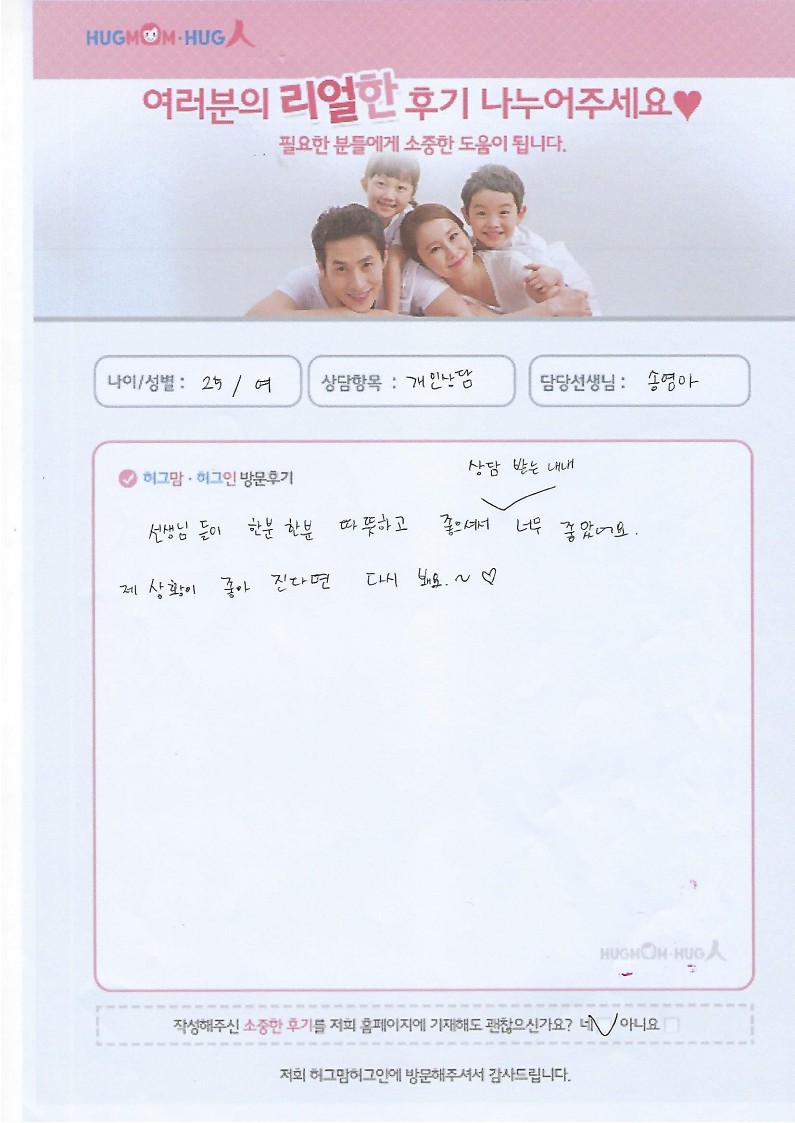 HUGMOM·HUG人
여러분의 리얼한 후기 나누어주세요♥
필요한 분들에게 소중한 도움이 됩니다.
나이/성별 : 25 / 여
상담항목 : 개인상담
담당선생님 : 송영아
허그맘 · 허그인 방문후기
상담 받는 내내
선생님 들이 한분 한분 따뜻하고 좋으셔서 너무 좋았어요.
제 상황이 좋아 진다면 다시 봬요.~ ♡
HUGMOM·HUG人
작성해주신 소중한 후기를 저희 홈페이지에 기재해도 괜찮으신가요? 네 ✓ 아니요 □
저희 허그맘허그인에 방문해주셔서 감사드립니다.